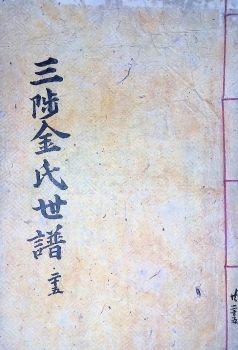 三陟金氏世譜